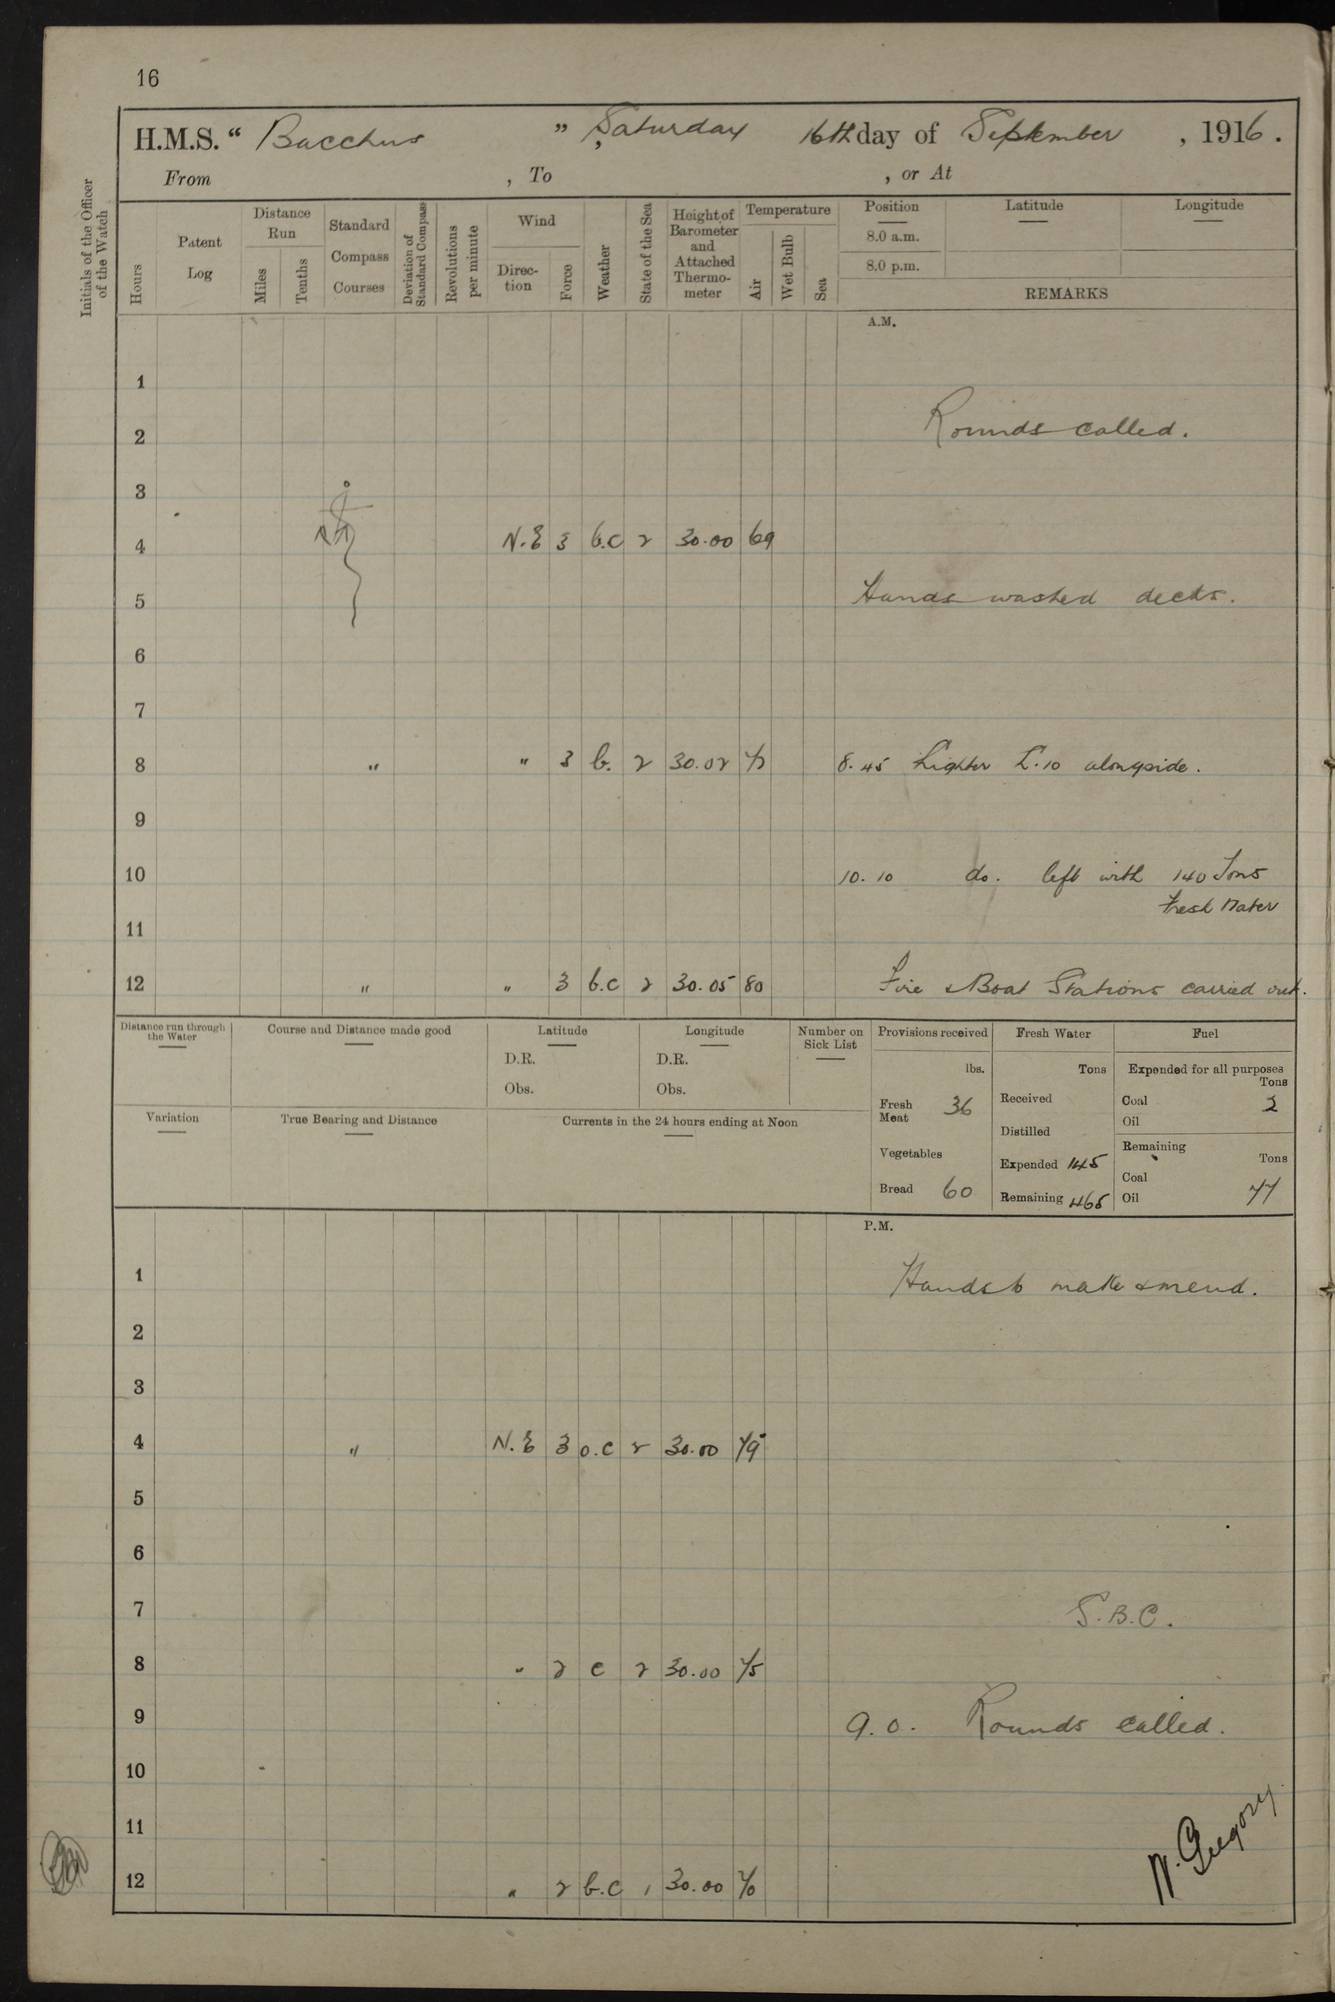 16
H.M.S. " Bacchus " , Saturday 16th day of September , 1916 .
From , To , or At
Initials of the Officer of the Watch
Hours
Patent Log
Distance Run
Miles
Tenths
Standard Compass Courses
Deviation of Standard Compass
Revolutions per minute
Wind
Direction
Force
Weather
State of the Sea
Height of Barometer and Attached Thermometer
Temperature
Air
Wet Bulb
Sea
Position
Latitude
Longitude
8.0 a.m.
8.0 p.m.
REMARKS
A.M.
1
2 Rounds called.
3
4 N.E 3 b.c 2 30.00 69
5 Hands washed decks.
6
7
8 " " 3 b. 2 30.02 72 8.45 Lighter L.10 alongside.
9
10 10.10 do. left with 140 Tons
Fresh Water
11
12 " " 3 b.c 2 30.05 80 Fire & Boat Stations carried out.
Distance run through the Water
Course and Distance made good
Latitude
D.R.
Obs.
Longitude
D.R.
Obs.
Number on Sick List
Variation
True Bearing and Distance
Currents in the 24 hours ending at Noon
Provisions received
lbs.
Fresh Meat 36
Vegetables
Bread 60
Fresh Water
Tons
Received
Distilled
Expended 145
Remaining 465
Fuel
Expended for all purposes
Tons
Coal 2
Oil
Remaining
Tons
Coal
Oil 77
P.M.
1 Hands to make & mend.
2
3
4 " N.E 3 o.c 2 30.00 79
5
6
7 S.B.C.
8 " 2 c 2 30.00 75
9 9.0. Rounds called.
10
11
12 " 2 b.c 1 30.00 70
N. Gregory